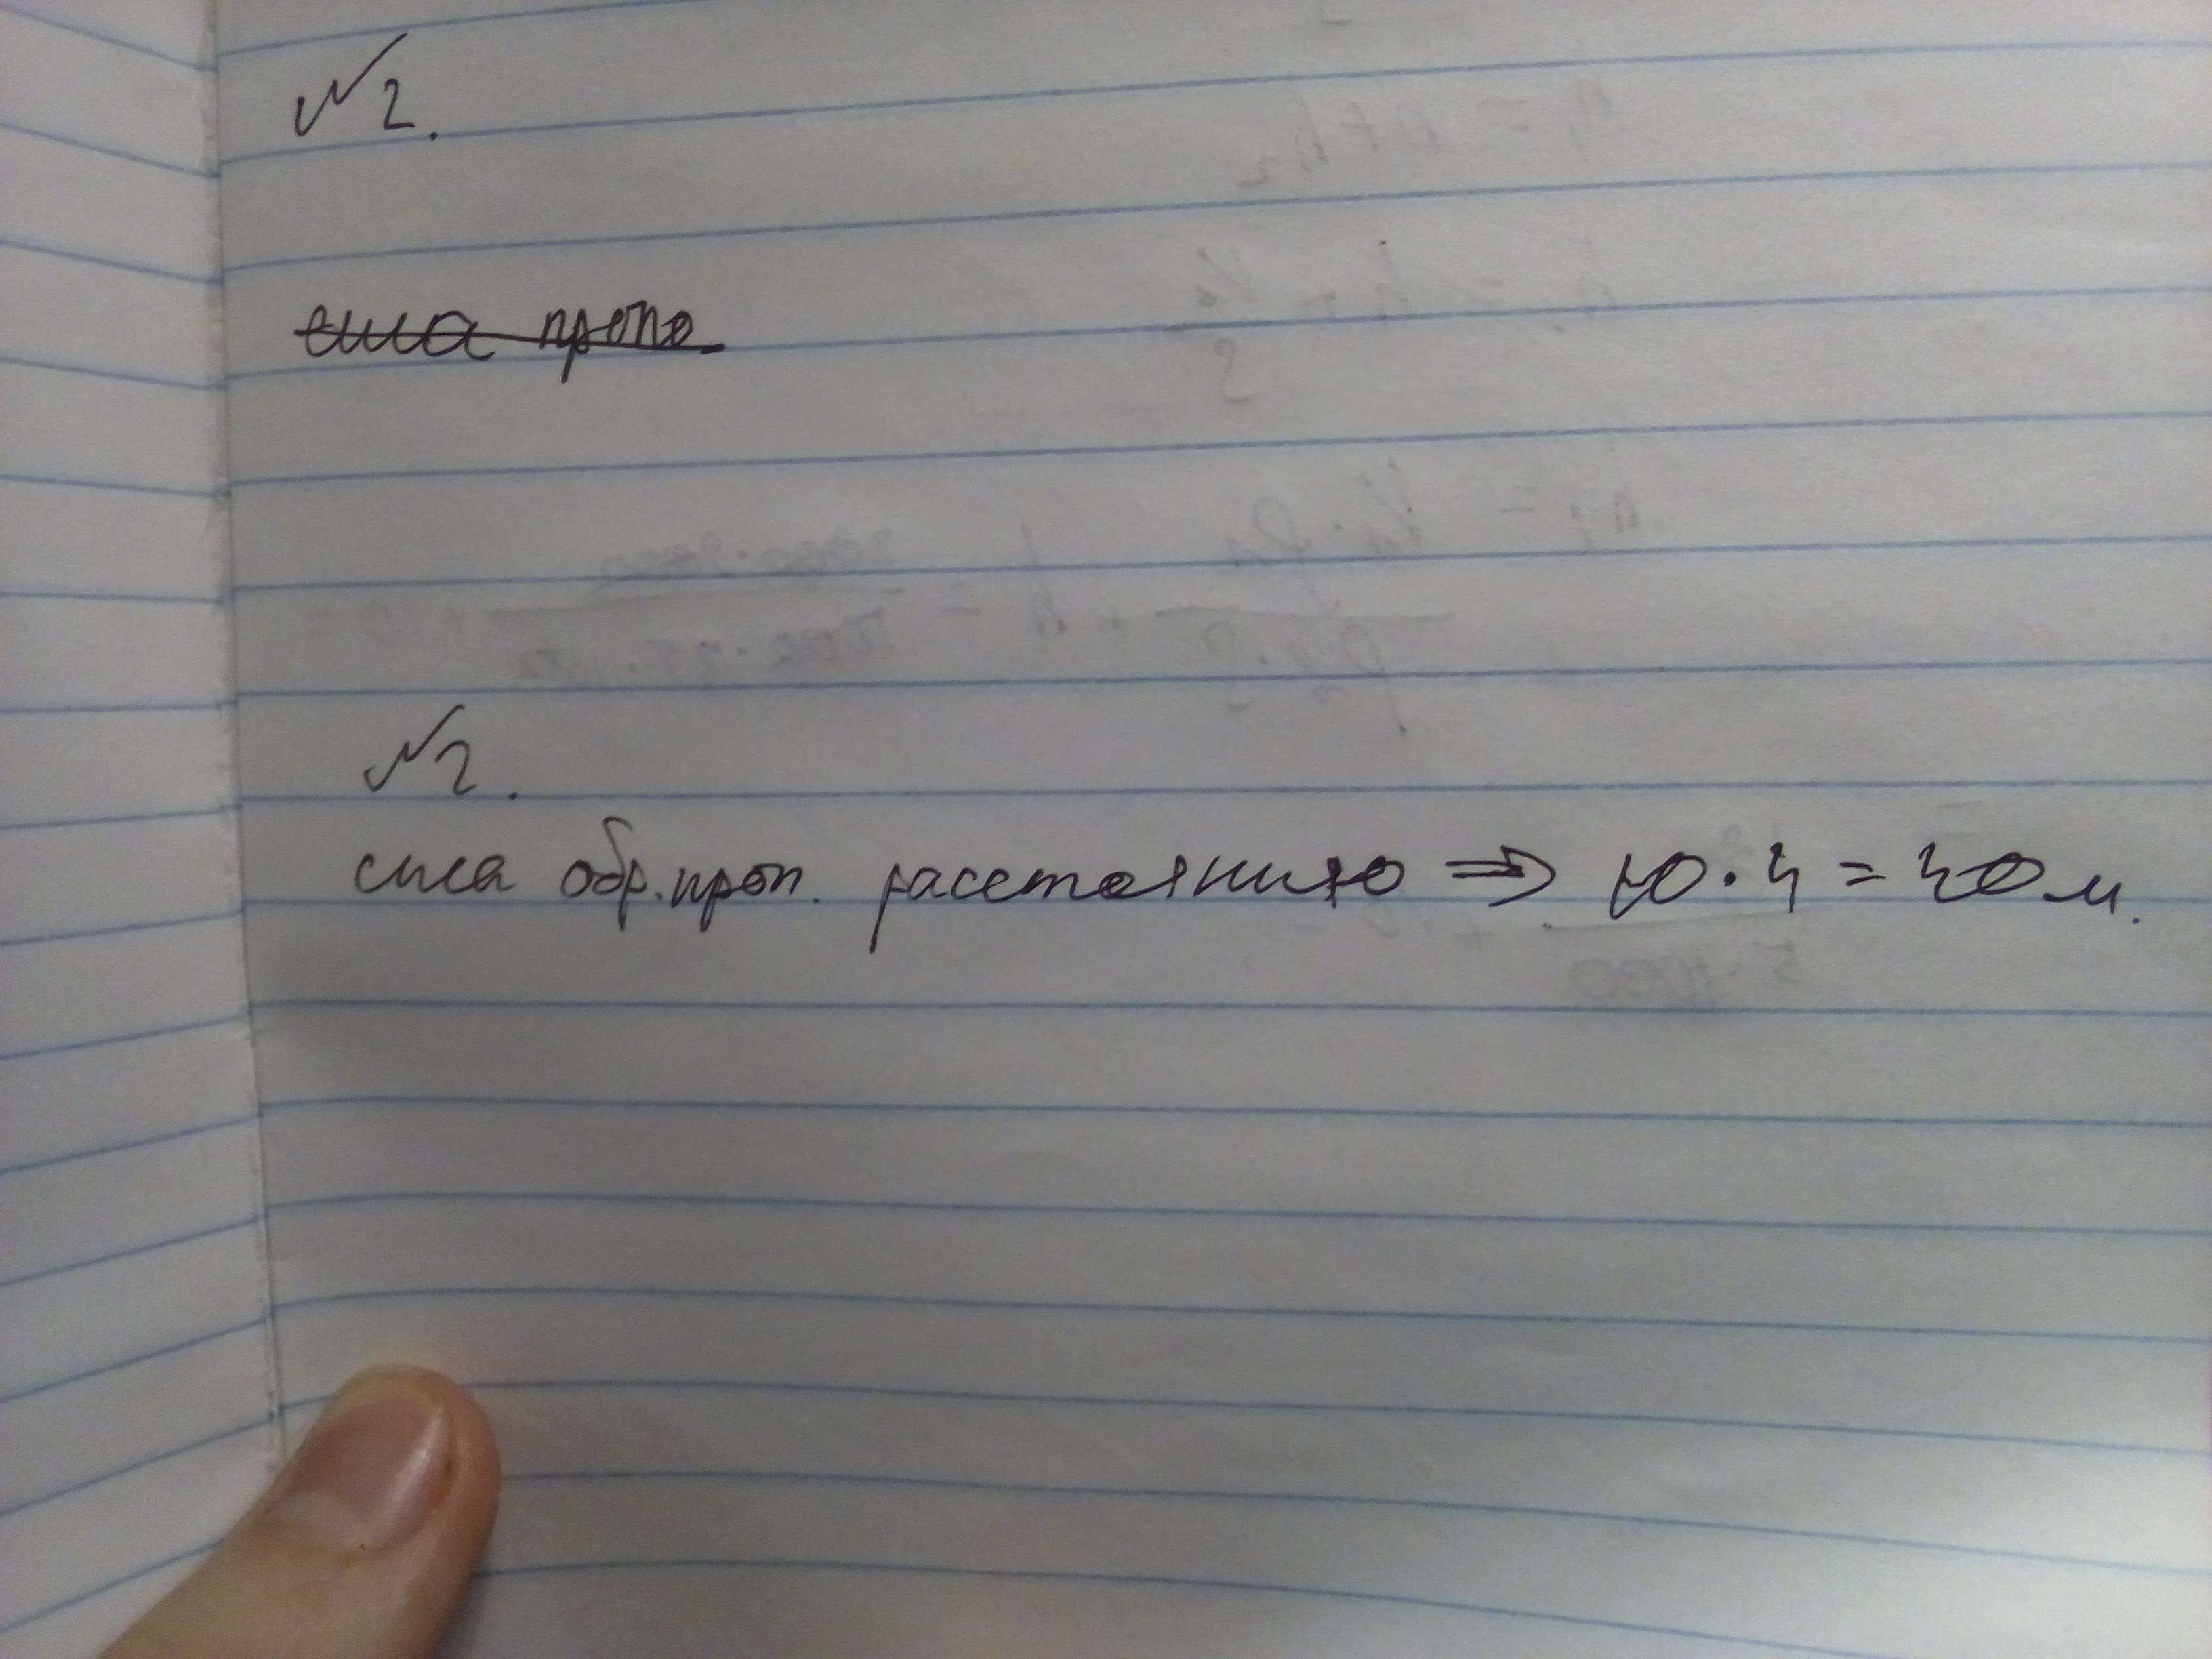 №2.
сила пропо
№2.
сила обр. проп. расстоянию ⇒ 10·4=40 м.